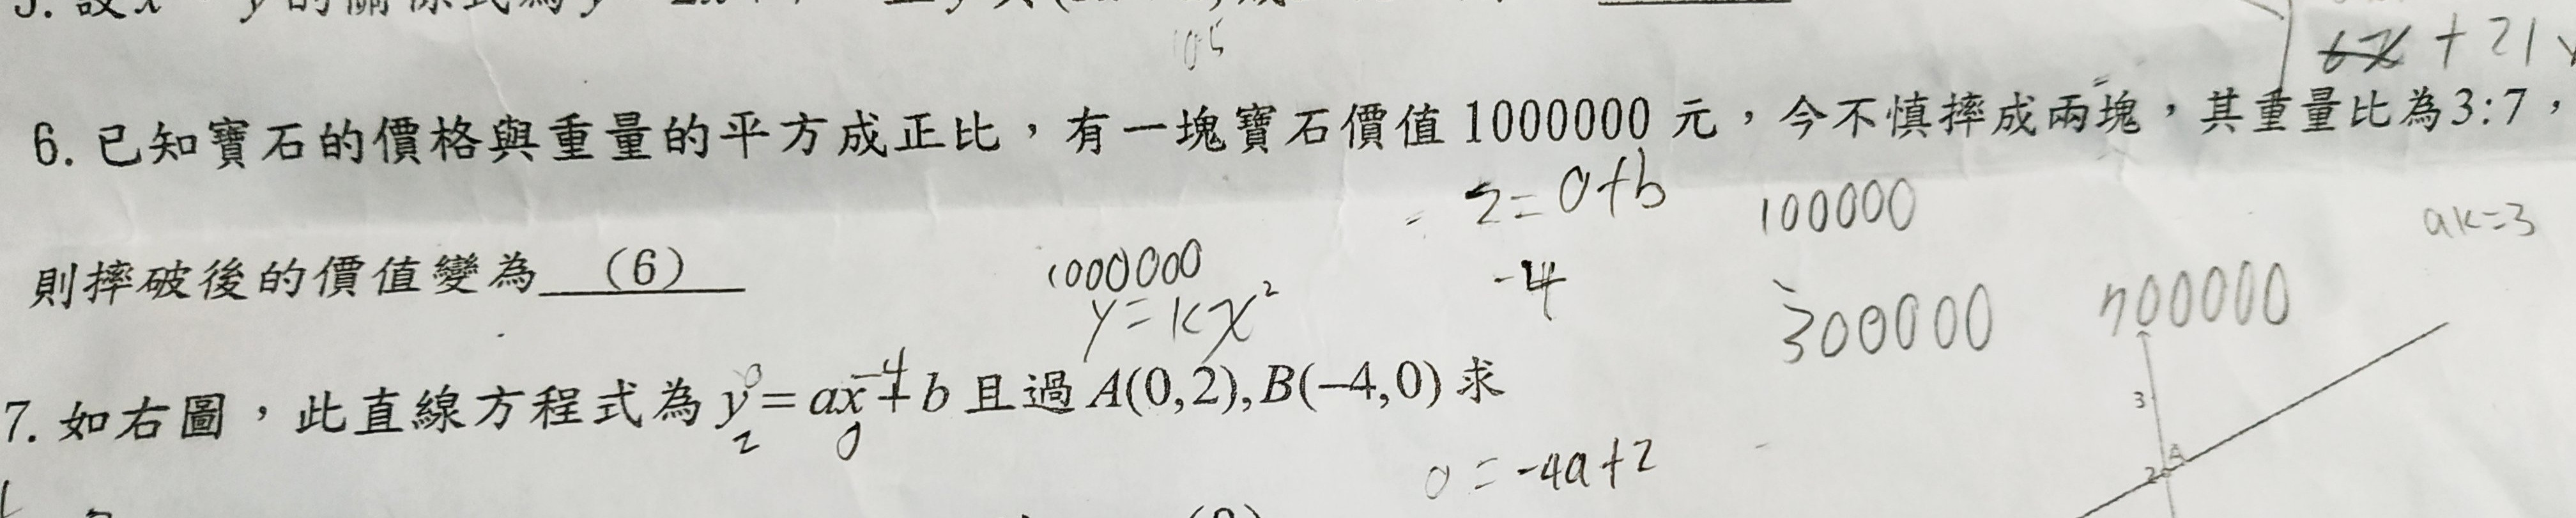 105
6x + 21
6. 已知寶石的價格與重量的平方成正比，有一塊寶石價值 1000000 元，今不慎摔成兩塊，其重量比為3:7，
2=0+b
100000
ak=3
則摔破後的價值變為 (6)
1000000
-4
y=kx²
300000
700000
7. 如右圖，此直線方程式為 y = ax + b 且過 A(0,2), B(−4,0) 求
0
-4
2
0
0 = -4a+2
3
A
2